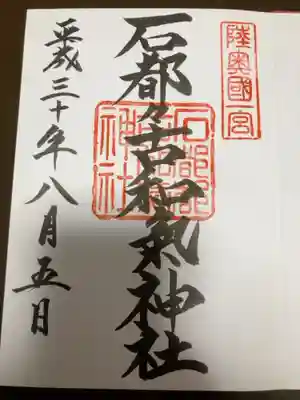 陸奥國一宮
石都々古和氣神社
石都都
神社
平成三十年八月五日